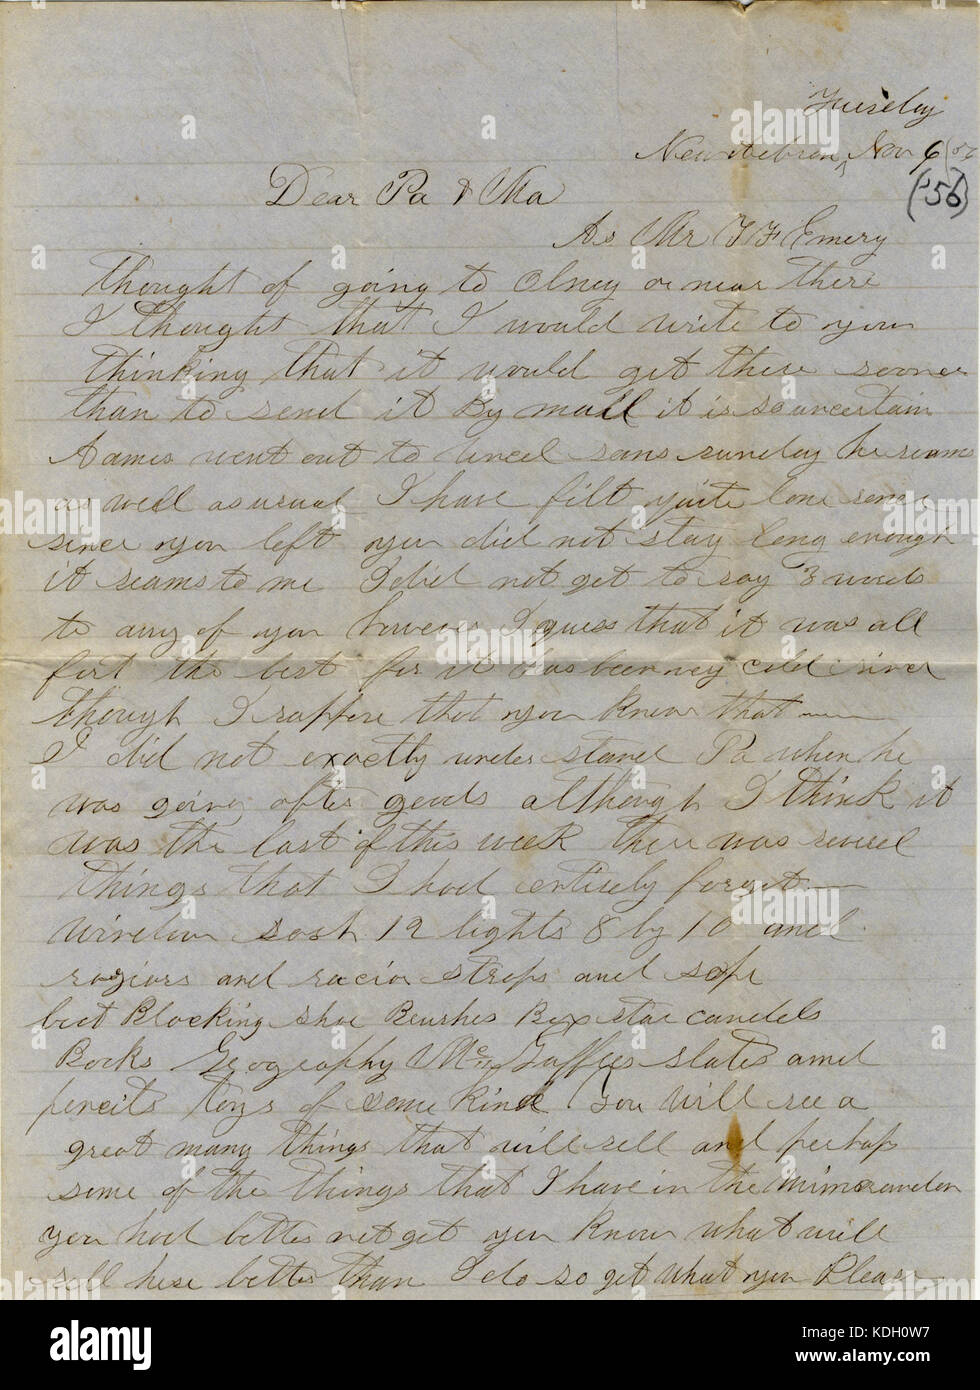 Tuesday
New Hebron, Nov 6
('56)
Dear Pa & Ma
As Mr T F Emery
thought of going to Olney or near there
I thought that I would write to you
thinking that it would get there sooner
than to send it By mall it is so uncertain
James went out to Uncel sams sunday he seams
as well as usual I have filt quite lone
since you left you did not stay long enough
it seams to me I did not get to say 3 words
to any of you however I guess that it was all
fort the best for it has been very cold since
though I suppose that you know that
I did not exactly understand Pa when he
was going after goods although I think it
was the last of this week there was sevrel
things that I had entirely forget
Window sash 12 lights 8 by 10 and
raziors and racior strops and sope
bect Blocking shoe Brushes Box star candels
Books Geography & Mc Guffees slates and
pencils toys of some kind You will see a
great many things that will sell and perhap
some of the things that I have in the
you had better not get you know what will
sell here better than I do so get what you Pleas
alamy
www.alamy.com
Image ID: KDH0W7